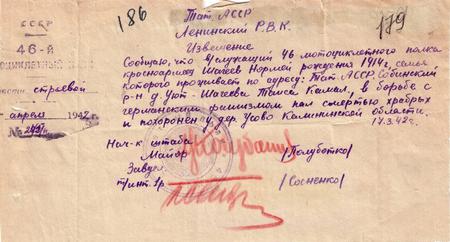 СССР
46-й
МОТОЦИКЛЕТНЫЙ ПОЛК
строевой
апрель 1942 г.
№
186
179
Тат. АССР
Ленинский Р.В.К.
Извещение
Сообщаю, что служащий 46 мотоциклетного полка
красноармеец Шагеев Нормей рождения 1914г, семья
которого проживает по адресу: Тат АССР, Собинский
р-н д. Уют-Шагеевы Камал, в борьбе с
германским фашизмом пал смертью храбрых
и похоронен у дер. Усово Калининской области.
17.3.42г.
Нач-к штаба
Майор /Полуботко/
Завдел.
т/инт. 1р. /Сосненко/